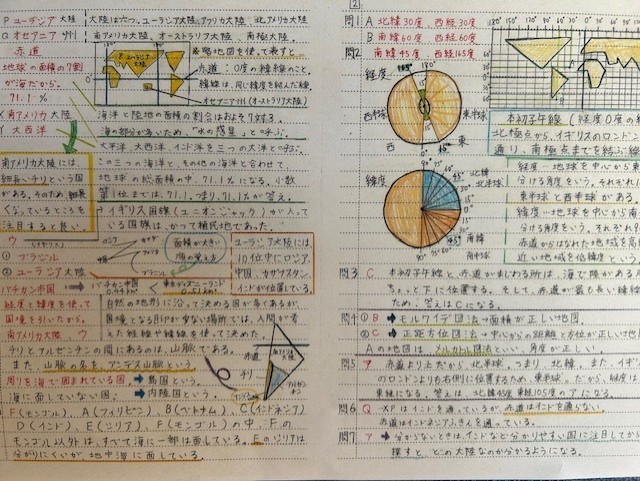 P ユーラシア大陸
Q オセアニア州
赤道
地球の面積の7割
が海だから。
71.1%
X 南アメリカ大陸
Y 大西洋
南アメリカ大陸には、
細長いチリという国
がある。そのため、細長
くなっているところを
注目すると良い。
大陸は六つ。ユーラシア大陸、アフリカ大陸、北アメリカ大陸
南アメリカ大陸、オーストラリア大陸、南極大陸。
略地図を使って表すと
赤道:0度の緯線のこと。
緯線は、同じ緯度を結んだ線
オセアニア州(オーストラリア大陸)
海洋と陸地の面積の割合はおよそ7対3。
海の部分が多いため、"水の惑星"とよぶ。
大平洋、大西洋、インド洋を三つの大洋とよぶ。
この三つの海洋と、その他の海洋と合わせて、
地球の総面積の中、71.1%になる。小数
第1位までは、71.1、つまり、71.1%が答え。
イギリス国旗(ユニオンジャック)が入って
いる国旗は、かつて植民地であった。
ウ
① ブラジル
② ユーラシア大陸
面積が大きい
順の覚え方
ユーラシア大陸には、
10位中にロシア、
中国、カザフスタン、
インドが位置している。
バチカン市国
バチカン市国
0.44km²
東京ディズニーランド
0.51km²
経度と緯度を使って
国境を引いたから。
自然の地形に沿って決める国が多くあるが、
国境となる目印が少ない場所では、人間が考
えた経線や緯線を使って決めた。
南アメリカ大陸、ウ
チリとアルゼンチンの間にあるのは、山脈である。
また、山脈の名を、アンデス山脈という。
周りを海で囲まれている国 → 島国という。
海に面していない国 → 内陸国という。
赤道
チリ
F(モンゴル)、A(フィリピン)、B(ベトナム)、C(インドネシア)
D(インド)、E(シリア)、F(モンゴル)の中、Fの
モンゴル以外は、すべて海に一部は面している。Eのシリアは
分かりにくいが、地中海に面している。
2
問1 A 北緯30度、西経30度
B 南緯60度、西経60度
問2 南緯45度、西経165度
経度
180°
西半球
東半球
0°
西
東
緯度
90°
北緯
北半球
0°
南緯
南半球
90°
本初子午線(経度0度の経
北極点から、イギリスのロンドン
通り、南極点までを結ぶ線
経度…地球を中心から東
分ける角度をいう。それぞれ
東半球と西半球がある。
緯度…地球を中心から南
分ける角度をいう。それぞれ
赤道からはなれた地域を高
近い地域を低緯度という
問3 C 本初子午線と、赤道がまじわる所は、海で陸がある
ちょっと下に位置する。そして、赤道が最も長い緯線
ため、答えはCになる。
問4 ① B → モルワイデ図法→面積が正しい地図。
② C → 正距方位図法→中心からの距離と方位が正しい地
Aの地図は、メルカトル図法といい、角度が正しい。
問5 ア 赤道より上だから、北半球。つまり、北緯。また、イギ
のロンドンよりも右側に位置するため、東半球。だから、経度は
東経になる。答えは、北緯45度東経105度のアになる。
問6 Q XPはインドを通っているが、赤道はインドを通らない
赤道はインドネシアふきんを通っている。
問7 ア → 分からないときは、インドなど分かりやすい国に注目してから
探すと、どこの大陸なのか分かるようになる。